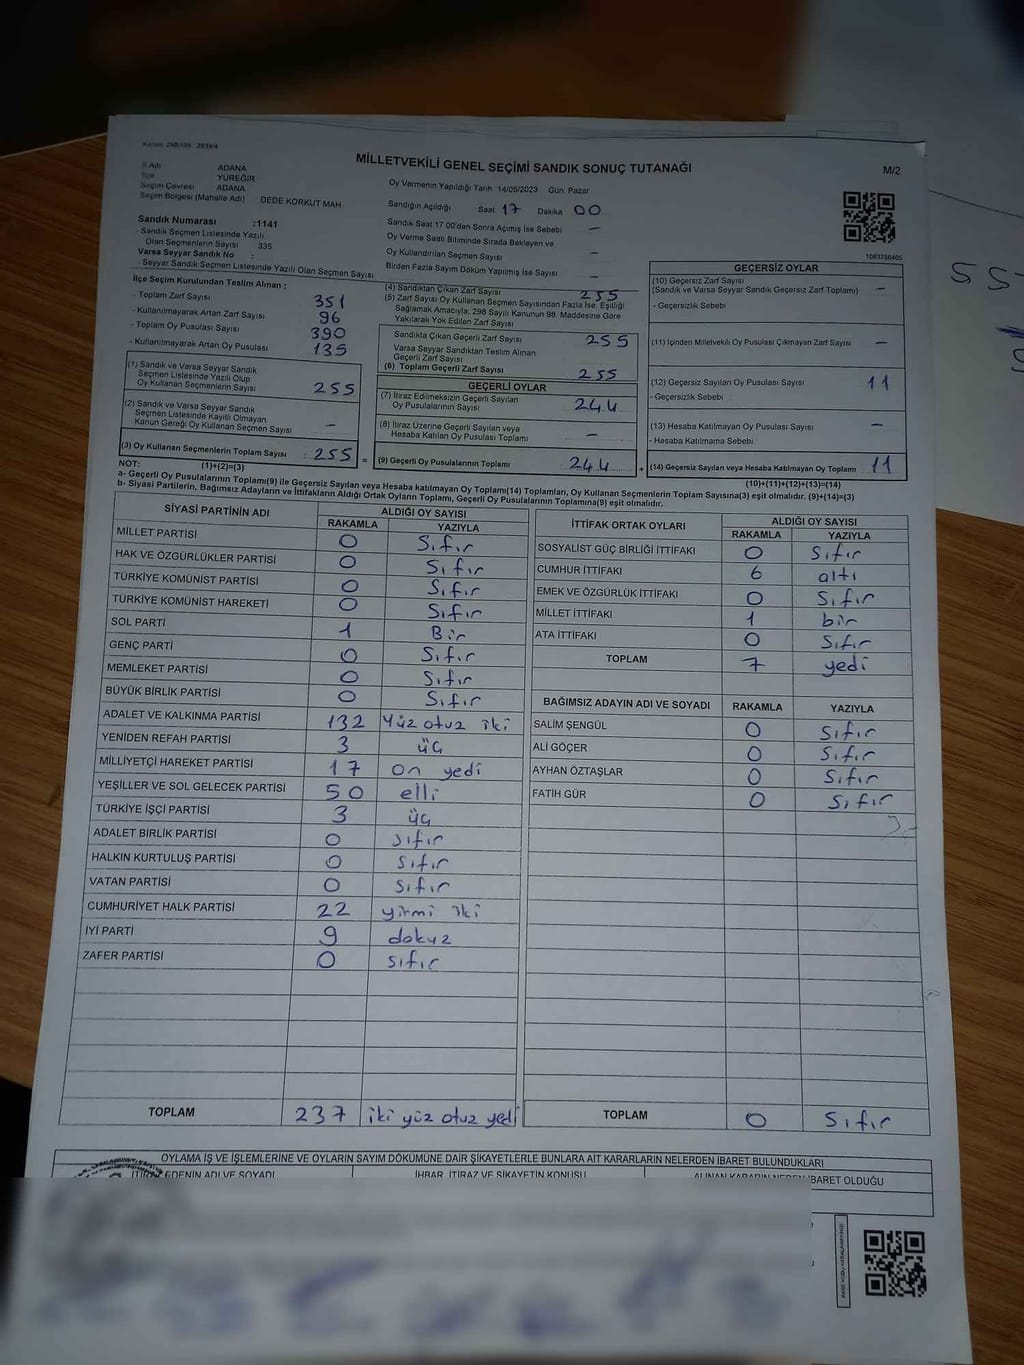 MİLLETVEKİLİ GENEL SEÇİMİ SANDIK SONUÇ TUTANAĞI
M/2
İl Adı ADANA
İlçe YÜREĞİR
Seçim Çevresi ADANA
Seçim Bölgesi (Mahalle Adı) DEDE KORKUT MAH.
Sandık Numarası :1141
Sandık Seçmen Listesinde Yazılı
Olan Seçmenlerin Sayısı 335
Varsa Seyyar Sandık No :
Seyyar Sandık Seçmen Listesinde Yazılı Olan Seçmen Sayısı
Oy Vermenin Yapıldığı Tarih 14/05/2023 Gün. Pazar
Sandığın Açıldığı Saat 17 Dakika 00
Sandık Saat 17 00'den Sonra Açımış İse Sebebi —
Oy Verme Saati Bitiminde Sırada Bekleyen ve
Oy Kullandırılan Seçmen Sayısı —
Birden Fazla Sayım Döküm Yapılmış İse Sayısı —
1083750405
İlçe Seçim Kurulundan Teslim Alınan ;
- Toplam Zarf Sayısı 351
- Kullanılmayarak Artan Zarf Sayısı 96
- Toplam Oy Pusulası Sayısı 390
- Kullanılmayarak Artan Oy Pusulası 135
(1) Sandık ve Varsa Seyyar Sandık
Seçmen Listesinde Yazılı Olup
Oy Kullanan Seçmenlerin Sayısı 255
(2) Sandık ve Varsa Seyyar Sandık
Seçmen Listesinde Kayıtlı Olmayan
Kanun Gereği Oy Kullanan Seçmen Sayısı —
(3) Oy Kullanan Seçmenlerin Toplam Sayısı : 255 =
(1)+(2)=(3)
(4) Sandıktan Çıkan Zarf Sayısı 255
(5) Zarf Sayısı Oy Kullanan Seçmen Sayısından Fazla İse, Eşitliği
Sağlamak Amacıyla, 298 Sayılı Kanunun 98. Maddesine Göre
Yakılarak Yok Edilen Zarf Sayısı
Sandıkta Çıkan Geçerli Zarf Sayısı 255
Varsa Seyyar Sandıktan Teslim Alınan
Geçerli Zarf Sayısı
(6) Toplam Geçerli Zarf Sayısı 255
GEÇERLİ OYLAR
(7) İtiraz Edilmeksizin Geçerli Sayılan
Oy Pusulalarının Sayısı 244
(8) İtiraz Üzerine Geçerli Sayılan veya
Hesaba Katılan Oy Pusulası Toplamı —
(9) Geçerli Oy Pusulalarının Toplamı 244 +
GEÇERSİZ OYLAR
(10) Geçersiz Zarf Sayısı
(Sandık ve Varsa Seyyar Sandık Geçersiz Zarf Toplamı) —
- Geçersizlik Sebebi
(11) İçinden Milletvekili Oy Pusulası Çıkmayan Zarf Sayısı —
(12) Geçersiz Sayılan Oy Pusulası Sayısı 11
- Geçersizlik Sebebi
(13) Hesaba Katılmayan Oy Pusulası Sayısı —
- Hesaba Katılmama Sebebi
(14) Geçersiz Sayılan veya Hesaba Katılmayan Oy Toplamı 11
(10)+(11)+(12)+(13)=(14)
NOT:
a- Geçerli Oy Pusulalarının Toplamı(9) ile Geçersiz Sayılan veya Hesaba katılmayan Oy Toplamı(14) Toplamları, Oy Kullanan Seçmenlerin Toplam Sayısına(3) eşit olmalıdır. (9)+(14)=(3)
b- Siyasi Partilerin, Bağımsız Adayların ve İttifakların Aldığı Ortak Oyların Toplamı, Geçerli Oy Pusulalarının Toplamına(9) eşit olmalıdır.
SİYASİ PARTİNİN ADI ALDIĞI OY SAYISI
RAKAMLA YAZIYLA
MİLLET PARTİSİ 0 Sıfır
HAK VE ÖZGÜRLÜKLER PARTİSİ 0 Sıfır
TÜRKİYE KOMÜNİST PARTİSİ 0 Sıfır
TÜRKİYE KOMÜNİST HAREKETİ 0 Sıfır
SOL PARTİ 1 Bir
GENÇ PARTİ 0 Sıfır
MEMLEKET PARTİSİ 0 Sıfır
BÜYÜK BİRLİK PARTİSİ 0 Sıfır
ADALET VE KALKINMA PARTİSİ 132 Yüz otuz iki
YENİDEN REFAH PARTİSİ 3 üç
MİLLİYETÇİ HAREKET PARTİSİ 17 on yedi
YEŞİLLER VE SOL GELECEK PARTİSİ 50 elli
TÜRKİYE İŞÇİ PARTİSİ 3 üç
ADALET BİRLİK PARTİSİ 0 sıfır
HALKIN KURTULUŞ PARTİSİ 0 sıfır
VATAN PARTİSİ 0 sıfır
CUMHURİYET HALK PARTİSİ 22 yirmi iki
İYİ PARTİ 9 dokuz
ZAFER PARTİSİ 0 sıfır
TOPLAM 237 iki yüz otuz yedi
İTTİFAK ORTAK OYLARI ALDIĞI OY SAYISI
RAKAMLA YAZIYLA
SOSYALİST GÜÇ BİRLİĞİ İTTİFAKI 0 Sıfır
CUMHUR İTTİFAKI 6 altı
EMEK VE ÖZGÜRLÜK İTTİFAKI 0 Sıfır
MİLLET İTTİFAKI 1 bir
ATA İTTİFAKI 0 Sıfır
TOPLAM 7 yedi
BAĞIMSIZ ADAYIN ADI VE SOYADI RAKAMLA YAZIYLA
SALİM ŞENGÜL 0 Sıfır
ALİ GÖÇER 0 Sıfır
AYHAN ÖZTAŞLAR 0 Sıfır
FATİH GÜR 0 Sıfır
TOPLAM 0 Sıfır
OYLAMA İŞ VE İŞLEMLERİNE VE OYLARIN SAYIM DÖKÜMÜNE DAİR ŞİKAYETLERLE BUNLARA AİT KARARLARIN NELERDEN İBARET BULUNDUKLARI
EDENİN ADI VE SOYADI İHBAR, İTİRAZ VE ŞİKAYETİN KONUSU ALINAN KARARIN NEDEN İBARET OLDUĞU